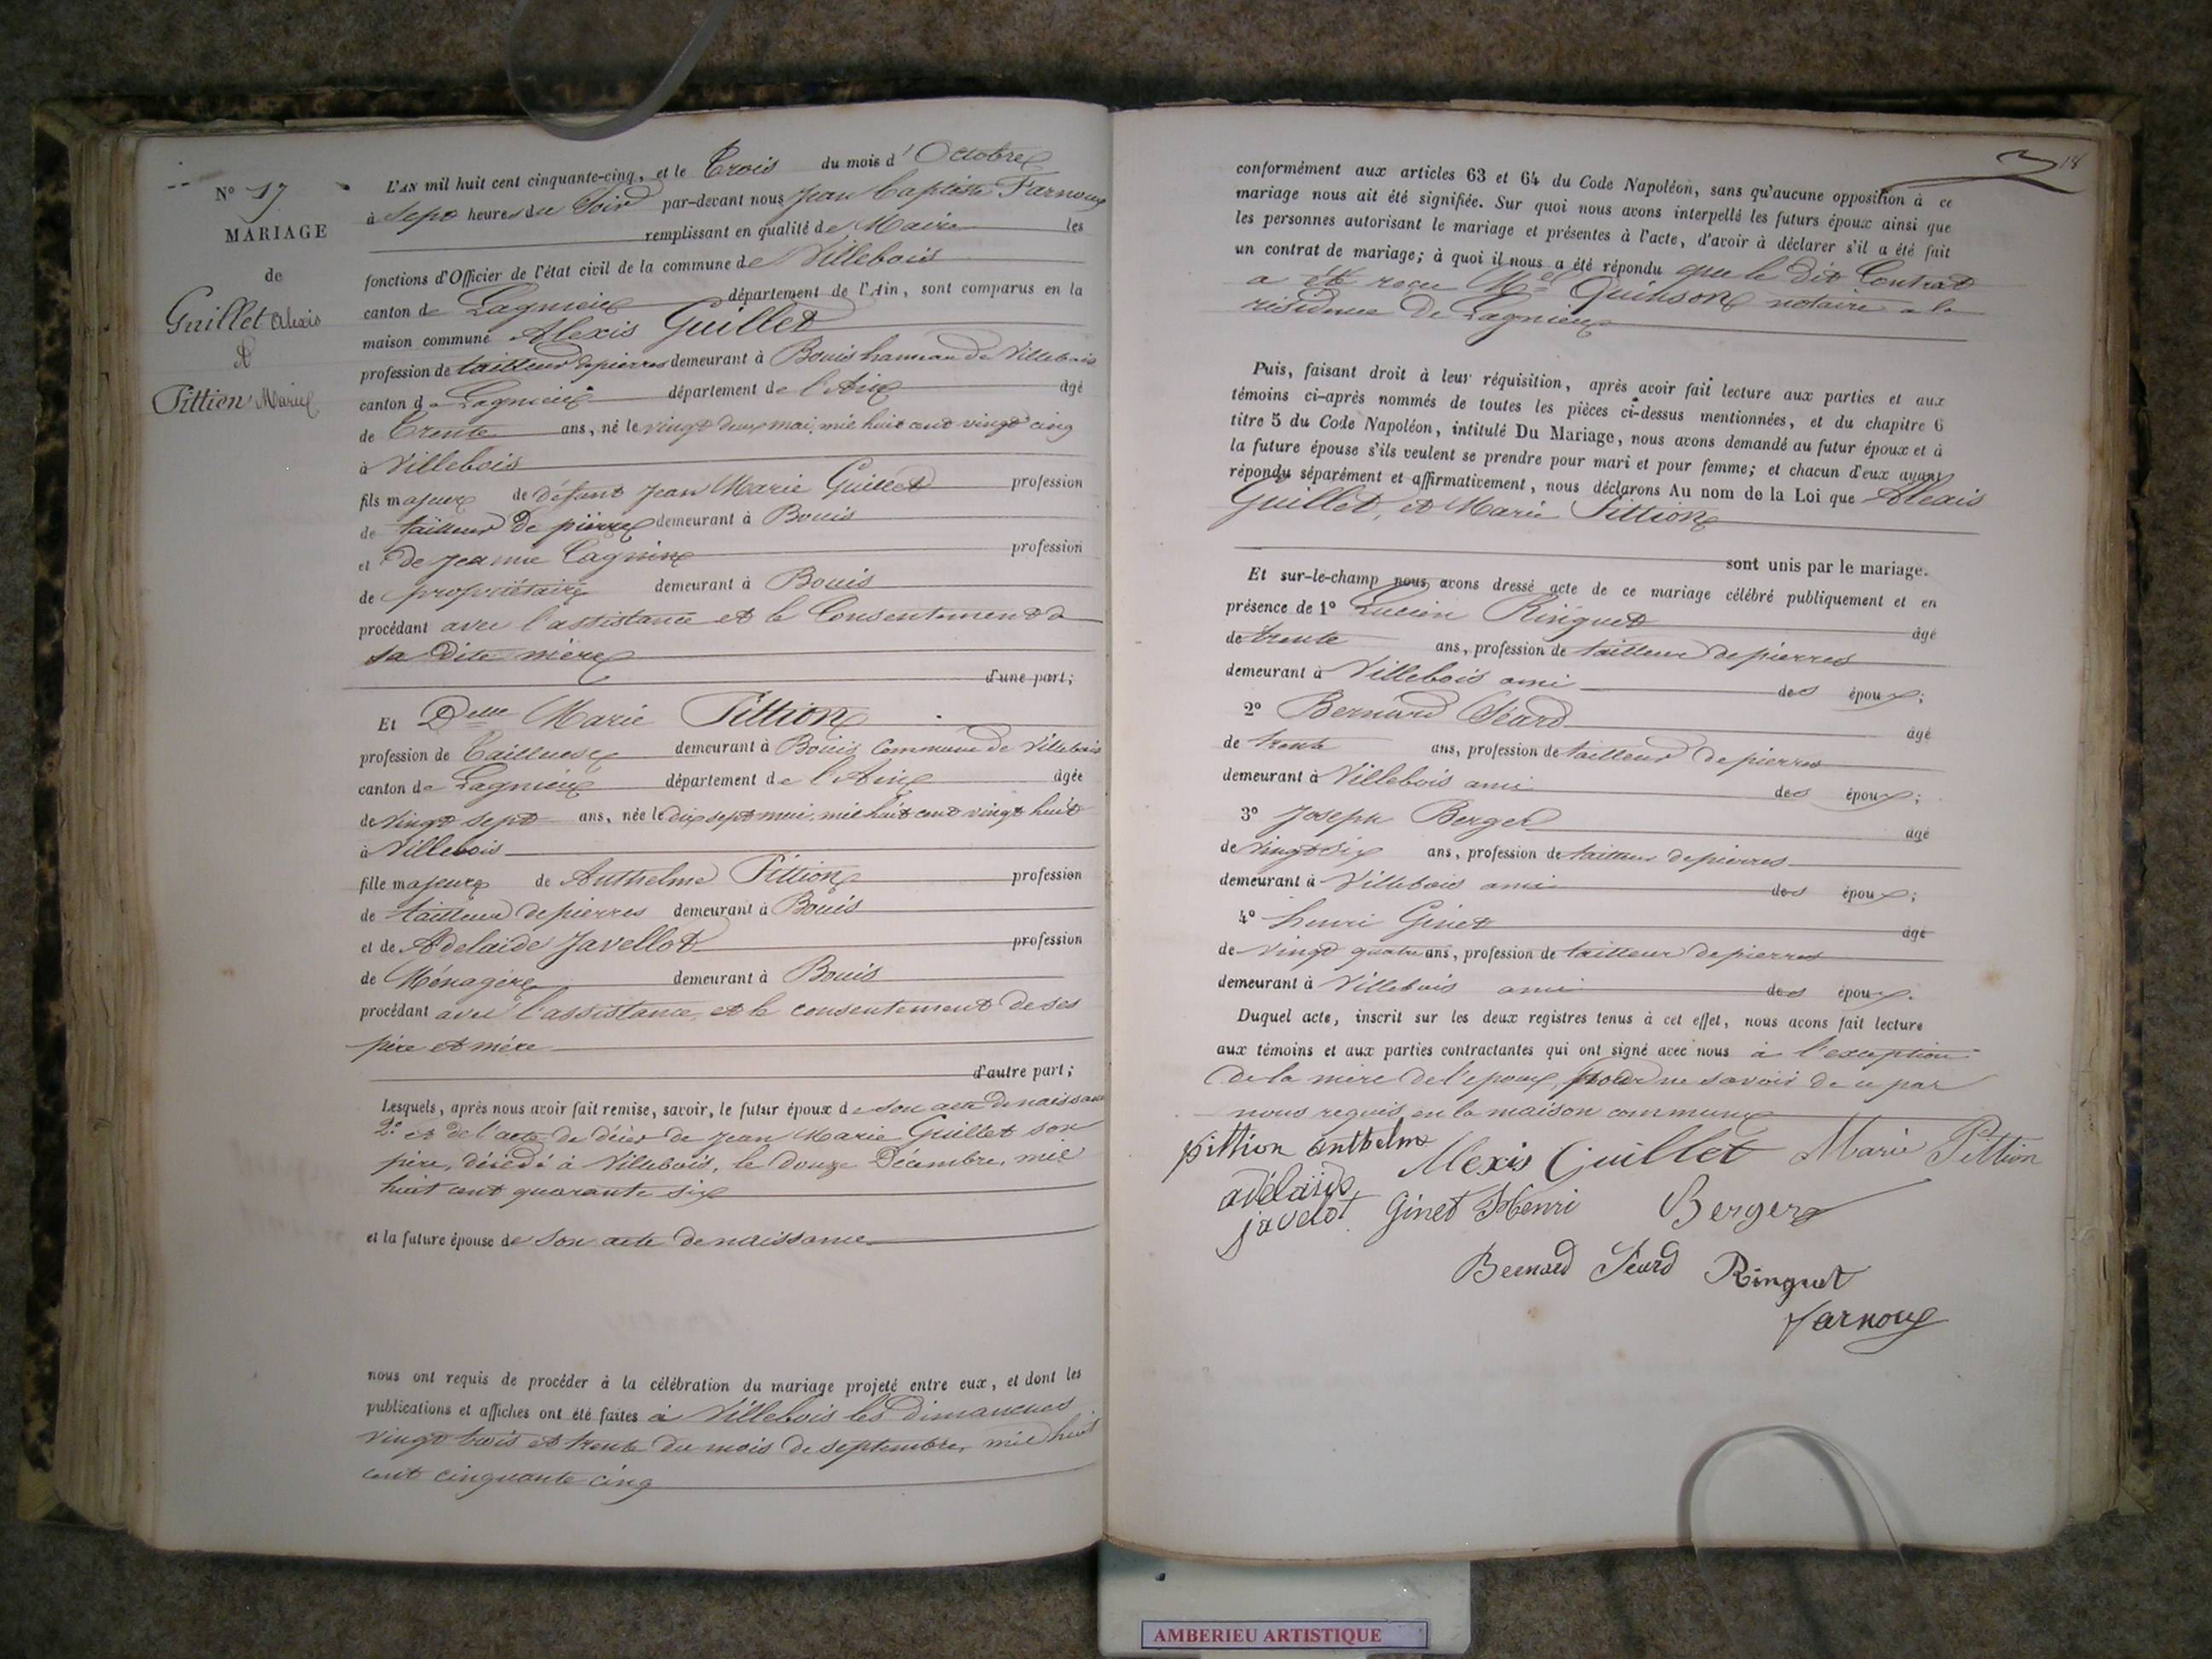 N° 17
MARIAGE
de
Guillet Alexis
&
Pittion Marie
L'AN mil huit cent cinquante-cinq, et le Trois du mois d'Octobre
à Sept heures du Soir par-devant nous Jean Baptiste Farnoux
remplissant en qualité de Maire les
fonctions d'Officier de l'état civil de la commune de Villebois
canton de Lagnieu département de l'Ain, sont comparus en la
maison commune Alexis Guillet
profession de tailleur de pierres demeurant à Bouis hameau de Villebois
canton de Lagnieu département de l'Ain âgé
de Trente ans, né le vingt deux mai, mil huit cent vingt cinq
à Villebois
fils majeur de défunt Jean Marie Guillet profession
de tailleur de pierre demeurant à Bouis
et de Jeanne Cagnin profession
de propriétaire demeurant à Bouis
procédant avec l'assistance et le Consentement de
sa dite mère
d'une part;
Et Delle Marie Pittion
profession de Tailleuse demeurant à Bouis Commune de Villebois
canton de Lagnieu département de l'Ain âgée
de vingt sept ans, née le dix sept mai, mil huit cent vingt huit
à Villebois
fille majeure de Anthelme Pittion profession
de tailleur de pierres demeurant à Bouis
et de Adelaïde Javellot profession
de Ménagère demeurant à Bouis
procédant avec l'assistance, et le consentement de ses
père et mère
d'autre part;
Lesquels, après nous avoir fait remise, savoir, le futur époux de son acte de naissance
2° et de l'acte de décès de Jean Marie Guillet son
père, décédé à Villebois, le douze Décembre, mil
huit cent quarante six
et la future épouse de son acte de naissance
nous ont requis de procéder à la célébration du mariage projeté entre eux, et dont les
publications et affiches ont été faites à Villebois les dimanches
vingt trois et trente du mois de septembre, mil huit
cent cinquante cinq
18
conformément aux articles 63 et 64 du Code Napoléon, sans qu'aucune opposition à ce
mariage nous ait été signifiée. Sur quoi nous avons interpellé les futurs époux ainsi que
les personnes autorisant le mariage et présentes à l'acte, d'avoir à déclarer s'il a été fait
un contrat de mariage; à quoi il nous a été répondu que le dit Contrat
a été reçu Me Quinson notaire à la
résidence de Lagnieu
Puis, faisant droit à leur réquisition, après avoir fait lecture aux parties et aux
témoins ci-après nommés de toutes les pièces ci-dessus mentionnées, et du chapitre 6
titre 5 du Code Napoléon, intitulé Du Mariage, nous avons demandé au futur époux et à
la future épouse s'ils veulent se prendre pour mari et pour femme; et chacun d'eux ayant
répondu séparément et affirmativement, nous déclarons Au nom de la Loi que Alexis
Guillet, et Marie Pittion
sont unis par le mariage.
Et sur-le-champ nous avons dressé acte de ce mariage célébré publiquement et en
présence de 1° Lucien Ringuet âgé
de trente ans, profession de tailleur de pierres
demeurant à Villebois ami des époux;
2° Bernard Séard âgé
de trente ans, profession de tailleur de pierres
demeurant à Villebois ami des époux;
3° Joseph Berger âgé
de vingt six ans, profession de tailleur de pierres
demeurant à Villebois ami des époux;
4° henri Ginet âgé
de vingt quatre ans, profession de tailleur de pierres
demeurant à Villebois ami des époux.
Duquel acte, inscrit sur les deux registres tenus à cet effet, nous avons fait lecture
aux témoins et aux parties contractantes qui ont signé avec nous à l'exception
de la mère de l'époux, pour ne savoir de ce par
nous requis, en la maison commune
pittion anthelme Alexis Guillet Marie Pittion
adélaide
javelot Ginet Henri Berger
Bernard Séard Ringuet
Farnoux
AMBERIEU ARTISTIQUE